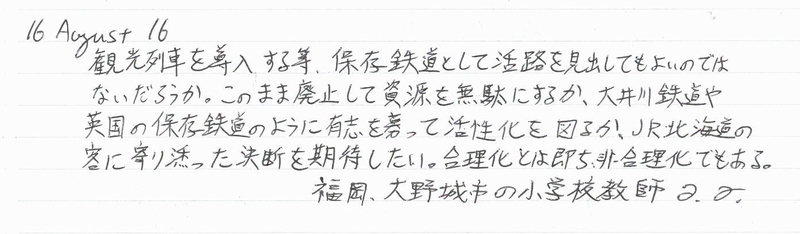 16 August 16
観光列車を導入する等、保存鉄道として活路を見出してもよいのでは
ないだろうか。このまま廃止して資源を無駄にするか、大井川鉄道や
英国の保存鉄道のように有志を募って活性化を図るか、JR北海道の
客に寄り添った決断を期待したい。合理化とは即ち非合理化でもある。
福岡、大野城市の小学校教師 a.a.